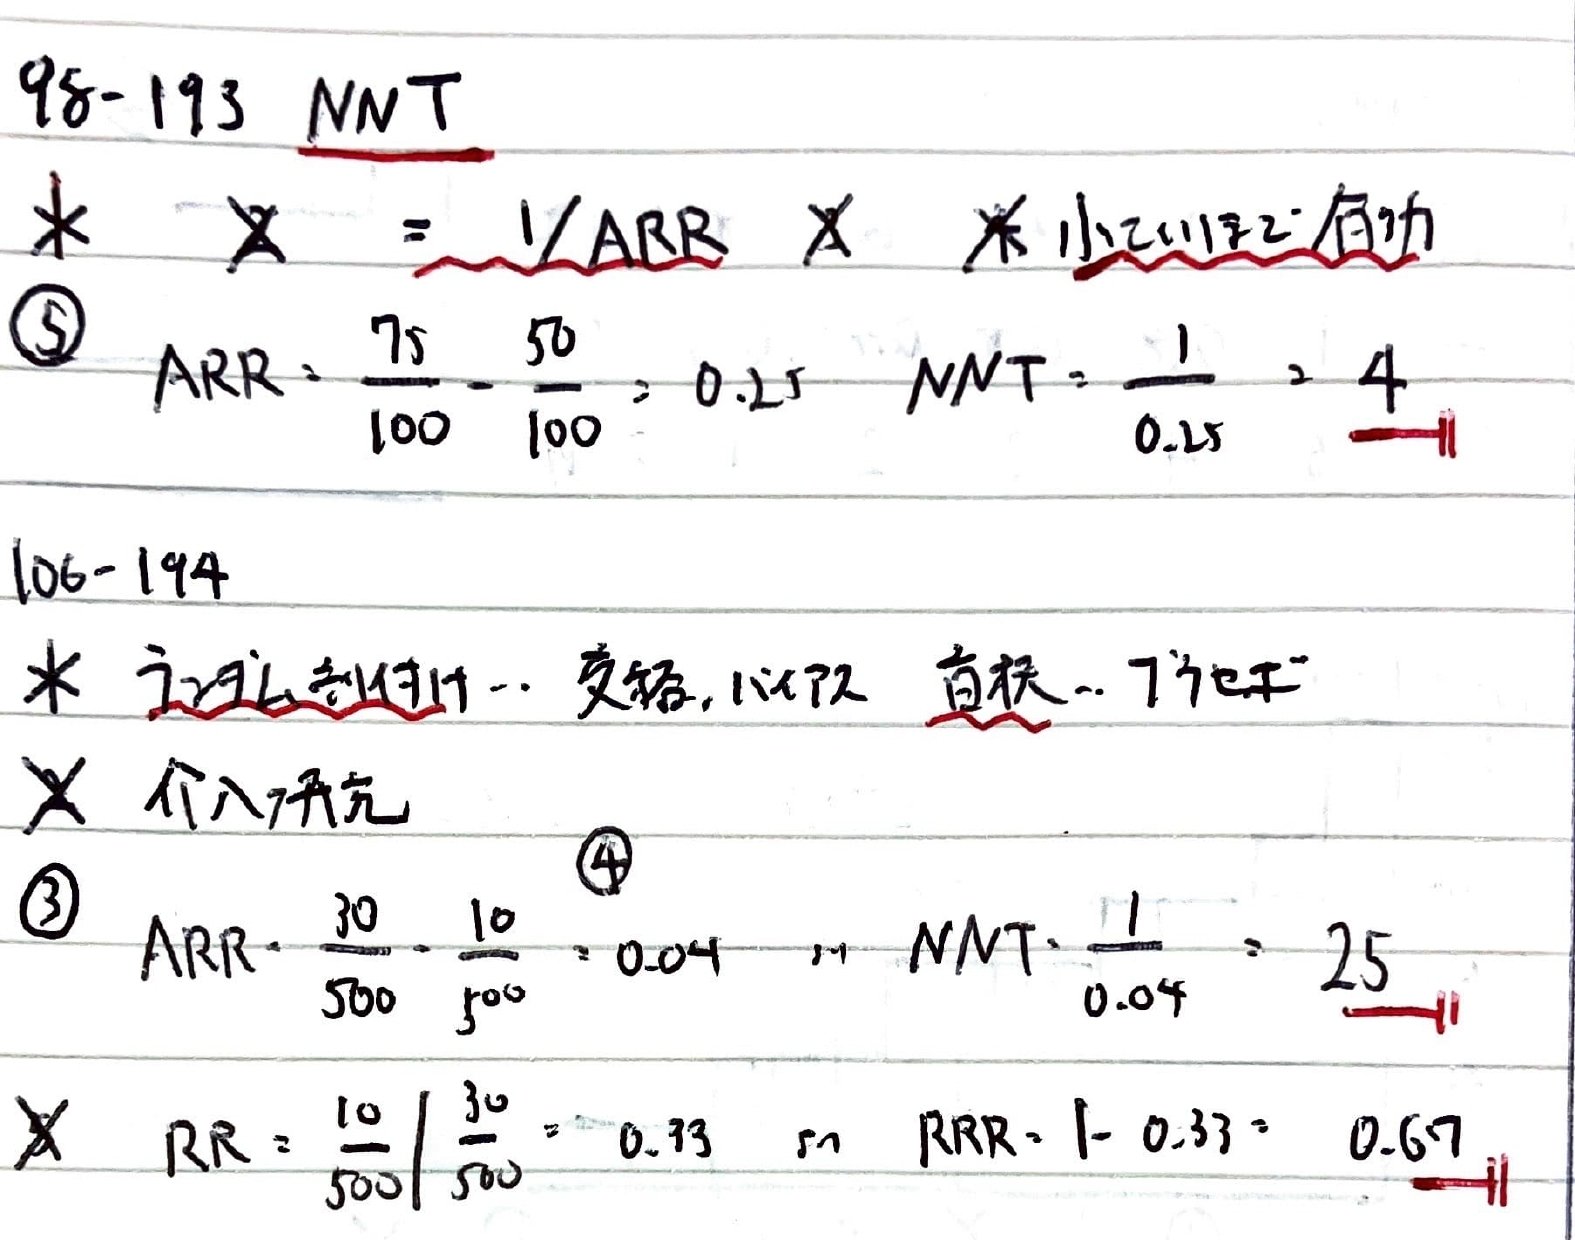 98-193 NNT
* X = 1/ARR X ※小さいほど有効
⑤ ARR = 75/100 - 50/100 = 0.25 NNT = 1/0.25 = 4
106-194
* ランダム割付け… 交絡,バイアス 盲検… プラセボ
X 介入研究
③ ARR = 30/500 - 10/500 = 0.04 ④ NNT = 1/0.04 = 25
X RR = 10/500 / 30/500 = 0.33 RRR = 1 - 0.33 = 0.67